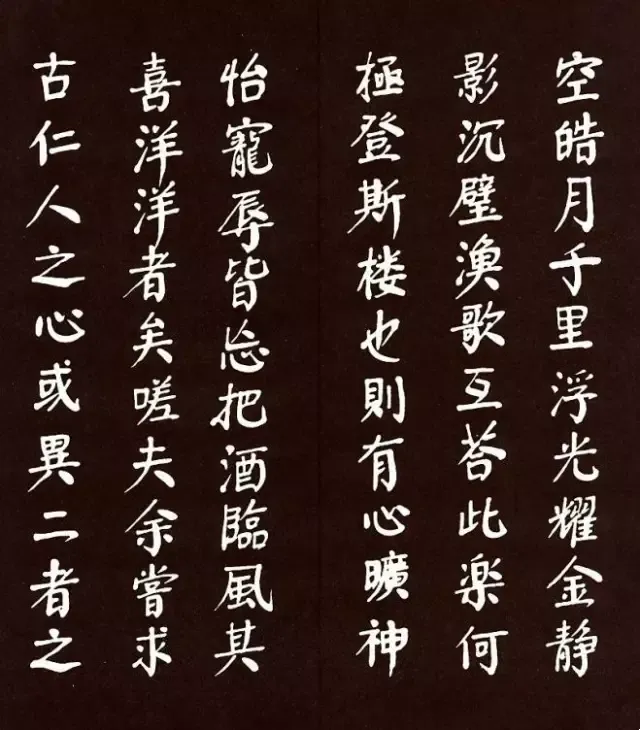 空皓月千里浮光耀金静
影沉璧漁歌互荅此楽何
極登斯楼也則有心曠神
怡寵辱皆忘把酒臨風其
喜洋洋者矣嗟夫余嘗求
古仁人之心或異二者之